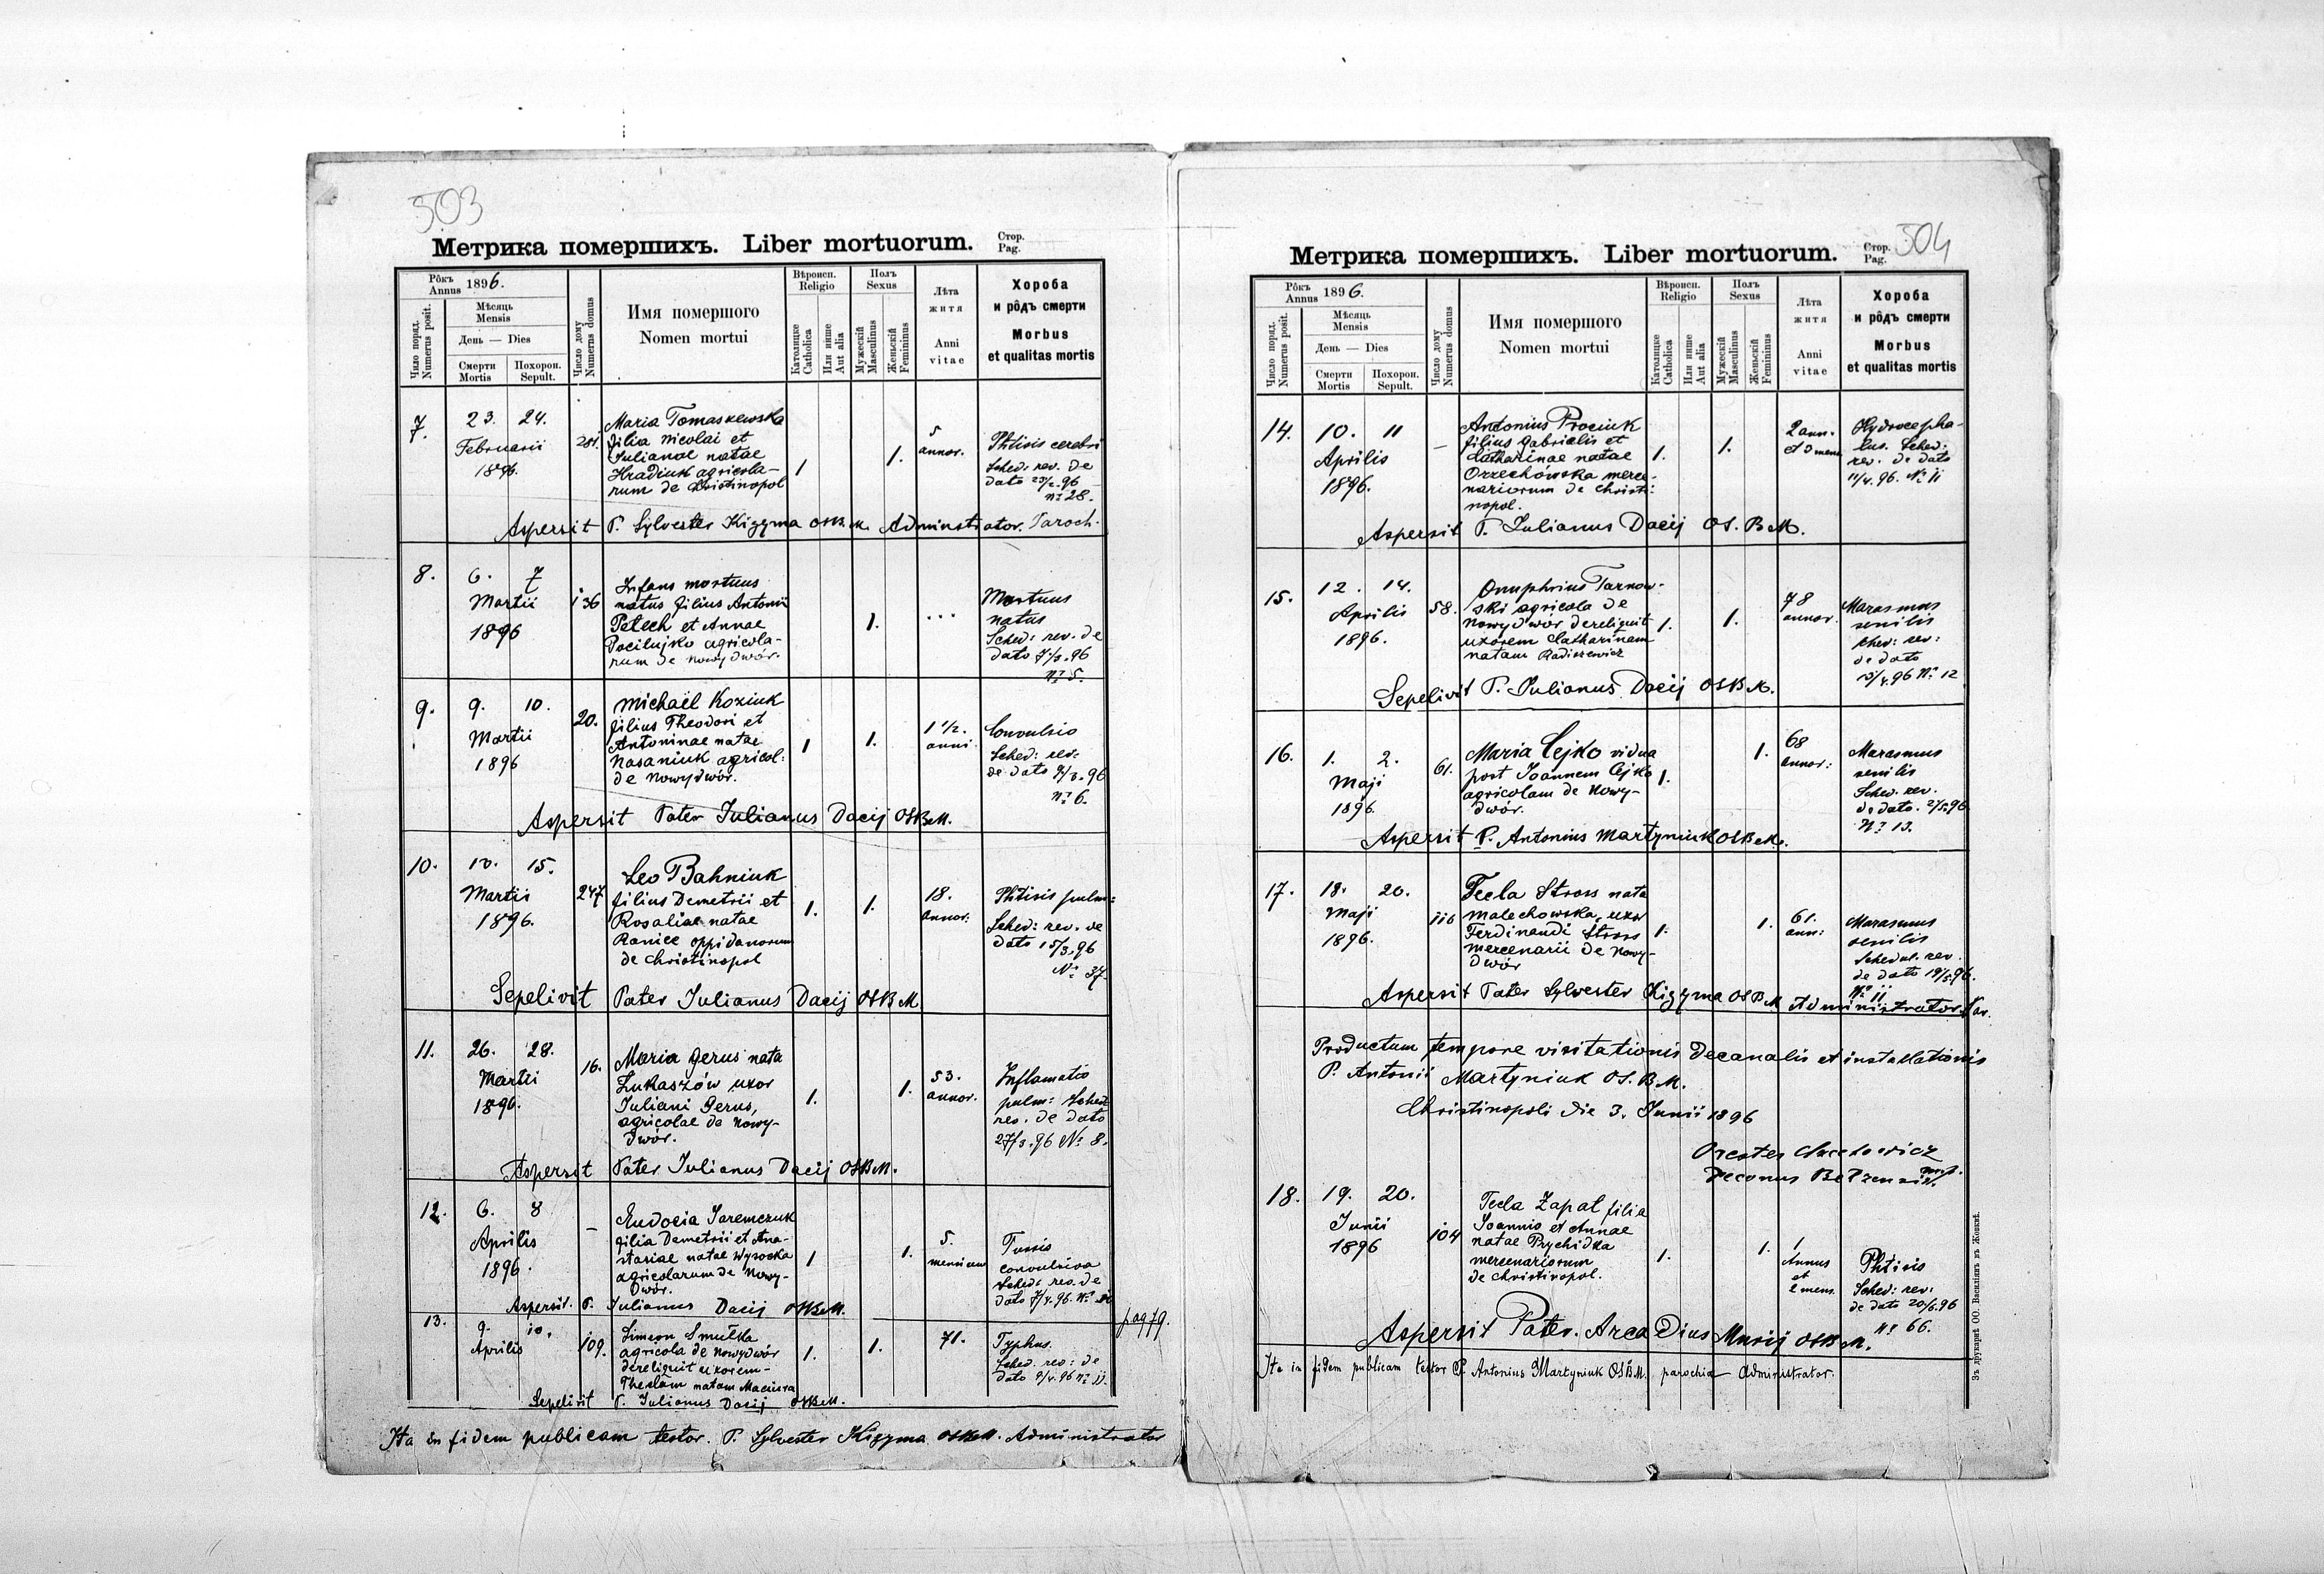 503
Метрика помершихъ. Liber mortuorum.
Стор.
Pag.
Рôкъ
Annus 1896.
Число поряд.
Numerus posit.
Мѣсяць
Mensis
День — Dies
Смерти
Mortis
Похорон.
Sepult.
Число дому
Numerus domus
Имя помершого
Nomen mortui
Вѣроисп.
Religio
Католицке
Catholica
Или инше
Aut alia
Полъ
Sexus
Мужескій
Masculinus
Женьскій
Femininus
Лѣта
житя
Anni
vitae
Хороба
и рôдъ смерти
Morbus
et qualitas mortis
7.
23. 24.
Februarii
1896.
281.
Maria Tomaszewska
filia Nicolai et
Julianae natae
Hradiuk agricola-
rum de Christinopol
1
1.
5
annor.
Phtisis cerebri
Sched: rev. de
dato 23/2.96
nº 28.
Aspersit P. Sylvester Kizyma OSBM. Adminstrator. Paroch.
8.
6. 7
Martii
1896
136
Infans mortuus
natus filius Antonii
Petech et Annae
Pocilujko agricola-
rum de Nowydwór.
1.
...
Mortuus
natus
Sched: rev. de
dato 7/3.96
Nº 5.
9.
9. 10.
Martii
1896
20.
Michaël Koziuk
filius Theodori et
Antoninae natae
Nasaniuk agricol:
de Nowydwór.
1
1.
1 1/2.
anni
Convulsio
Sched: rev:
de dato 9/3.96
Nº 6.
Aspersit Pater Julianus Dacij OSBM.
10.
13. 15.
Martii
1896.
247
Leo Bahniuk
filius Demetrii et
Rosaliae natae
Ranice oppidanorum
de Christinopol
1.
1.
18.
annor.
Phtisis pulm:
Sched: rev. de
dato 15/3.96
Nº 37.
Sepelivit Pater Julianus Dacij OSBM
11.
26. 28.
Martii
1896.
16.
Maria Gerus nata
Łukaszów uxor
Juliani Gerus,
agricolae de Nowy-
dwór.
1.
1.
53.
annor.
Inflamatio
pulm: Sched
rev. de dato
27/3.96 Nº 8.
Aspersit Pater Julianus Dacij OSBM.
12.
6. 8
Aprilis
1896.
–
Eudocia Jaremczuk
filia Demetrii et Ana-
stasiae natae Wysocka
agricolarum de Nowy-
dwór.
1
1.
5.
mensium
Tussis
convulsiva
Sched: rev. de
dato 7/4.96. Nº
Aspersit. P. Julianus Dacij OSBM.
pag 79.
13.
9. 10.
Aprilis
109.
Simeon Smułka
agricola de Nowydwór
dereliquit uxorem-
Theclam natam Maciura
1.
1.
71.
Typhus.
Sched. rev: de
dato 9/4.96 Nº 11.
Sepelivit P. Julianus Dacij OSBM.
Ita in fidem publicam testor. P. Sylvester Kizyma OSBM. Administrator
504
Метрика помершихъ. Liber mortuorum.
Стор.
Pag.
Рôкъ
Annus 1896.
Число поряд.
Numerus posit.
Мѣсяць
Mensis
День — Dies
Смерти
Mortis
Похорон.
Sepult.
Число дому
Numerus domus
Имя помершого
Nomen mortui
Вѣроисп.
Religio
Католицке
Catholica
Или инше
Aut alia
Полъ
Sexus
Мужескій
Masculinus
Женьскій
Femininus
Лѣта
житя
Anni
vitae
Хороба
и рôдъ смерти
Morbus
et qualitas mortis
14.
10. 11
Aprilis
1896.
–
Antonius Prociuk
filius Gabrielis et
Catharinae natae
Orzechówska merce-
nariorum de Christi-
nopol.
1.
1.
2 ann.
et mens.
Hydrocepha-
lus. Sched:
rev. de dato
11/4.96. Nº 11
Aspersit P. Julianus Dacij OS.BM.
15.
12. 14.
Aprilis
1896.
58.
Onuphrius Tarnow-
ski agricola de
Nowydwór dereliquit
uxorem Catharinam
natam Radiszewicz
1.
1.
78
annor.
Marasmus
senilis
sched: rev:
de dato
13/4.96 Nº 12
Sepelivit P. Julianus Dacij OSBM.
16.
1. 2.
Maji
1896.
61.
Maria Cejko vidua
post Joannem Cejko
agricolam de Nowy-
dwór.
1.
1.
68
annor:
Marasmus
senilis
Sched. rev.
de dato. 2/5.96
Nº 13.
Aspersit P. Antonius Martyniuk OSBM.
17.
18. 20.
Maji
1896.
116
Tecla Stross nata
Malechowska, uxor
Ferdinandi Stross
mercenarii de Nowy-
dwór
1.
1.
61.
ann:
Marasmus
senilis
Schedul. rev.
de dato 19/5.96.
Nº 11
Aspersit Pater Sylvester Kizyma OSBM Administrator Par.
Productum tempore visitationis Decanalis et installationis
P. Antonii Martyniuk OS.B.M.
Christinopoli die 3. Junii 1896
Decanus Belzensis.
18.
19. 20.
Junii
1896
104
Tecla Zapał filia
Joannis et Annae
natae Prychidka
mercenariorum
de Christinopol.
1.
1.
1
Annus
et
2 mens.
Phtisis
Sched: rev:
de dato 20/6.96
Nº 66.
Aspersit Pater. Arcadius Musij OSBM.
Ita in fidem publicam testor P. Antonius Martyniuk OSBM. parochia Administrator.
Зъ друкарнѣ ОО. Василіянъ въ Жовквѣ.